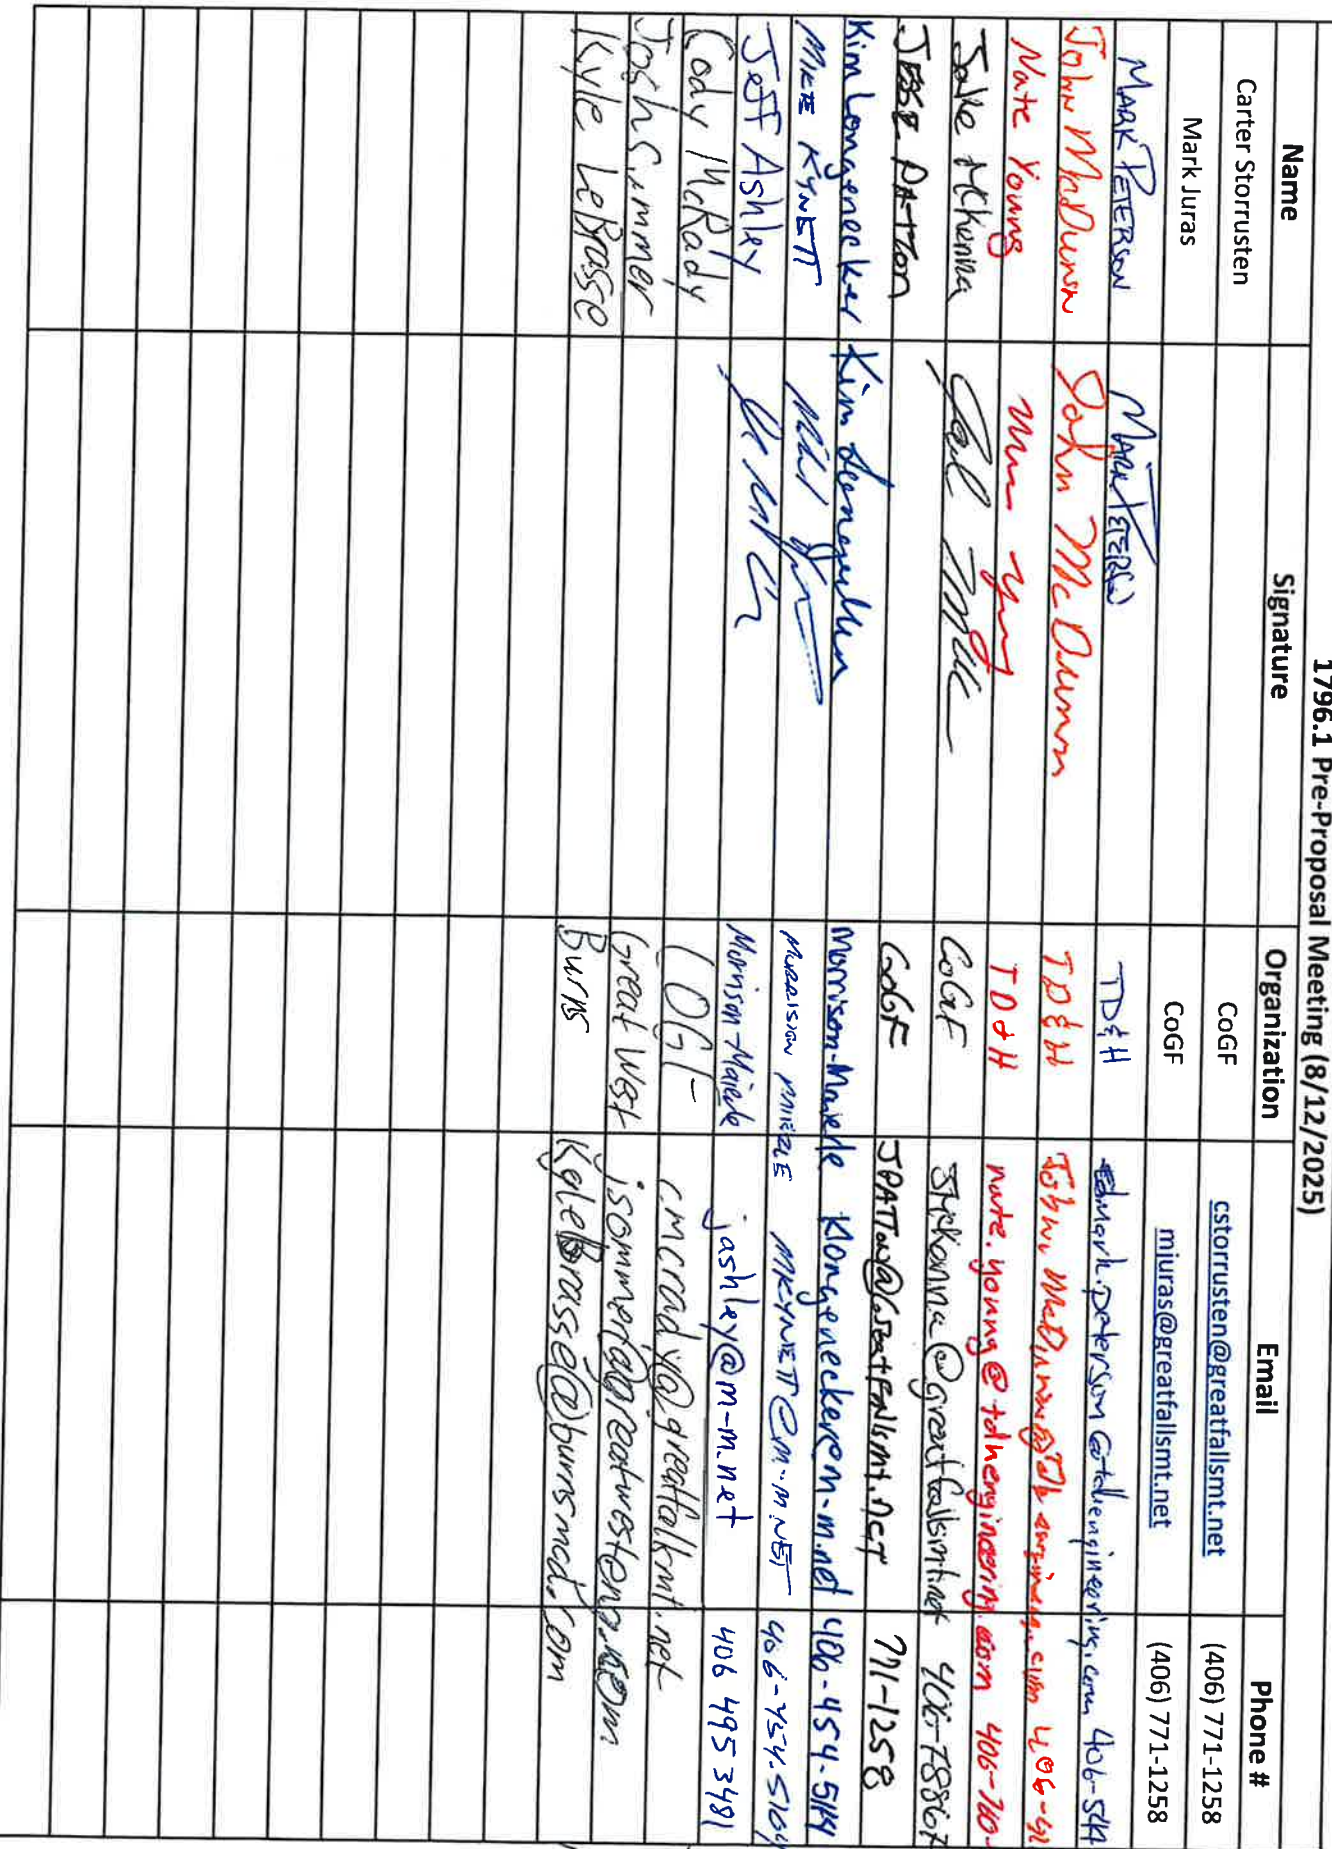 1796.1 Pre-Proposal Meeting (8/12/2025)
Name Signature Organization Email Phone #
Carter Storrusten CoGF cstorrusten@greatfallsmt.net (406) 771-1258
Mark Juras CoGF mjuras@greatfallsmt.net (406) 771-1258
MARK PETERSON MARK PETERSON TD&H mark.peterson@tdhengineering.com 406-
John McDunn John McDunn TD&H 406-
Nate Young TD&H nate.young@tdhengineering.com 406-
Jake McKenna CoGF JMcKenna@greatfallsmt.net
JESSE PATTON CoGF JPATTON@GreatFallsmt.net 771-1258
Kim Longenecker Kim Longenecker Morrison-Maierle klongenecker@m-m.net
MIKE KYNETT MORRISON MAIERLE MKYNETT@M-M.NET 406-454-5104
Jeff Ashley Morrison-Maierle jashley@m-m.net 406 495 3481
Cody McRady COGF cmcrady@greatfallsmt.net
Josh Sommer Great West
Kyle LeBrasse Burns KyleBrasse@burnsmcd.com